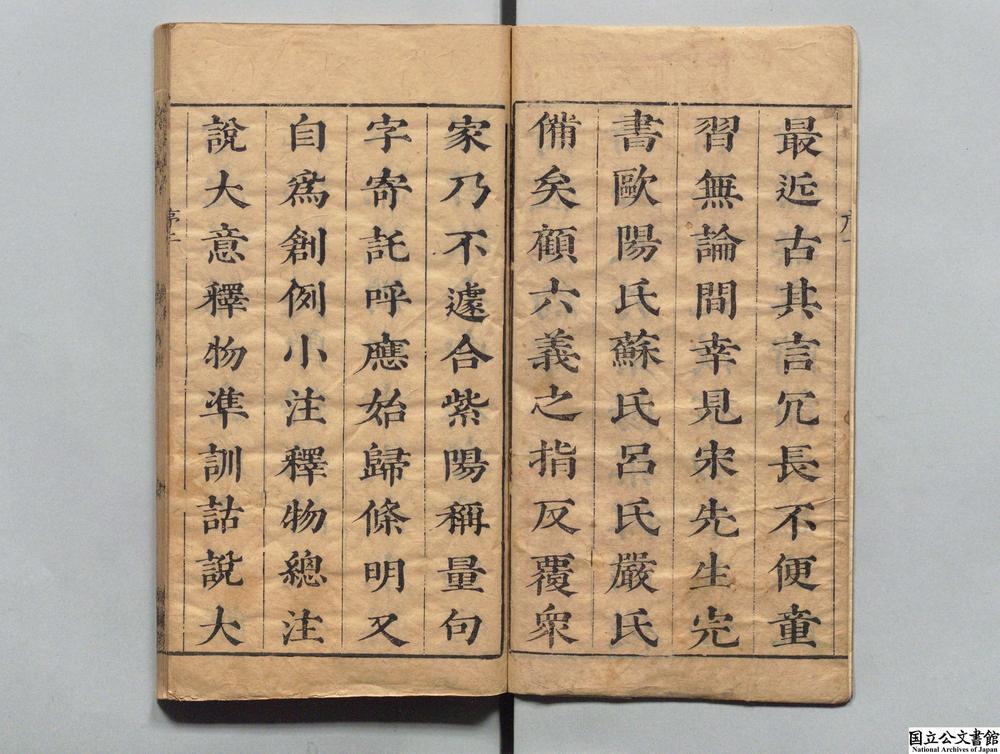 最近古其言冗長不便童
習無論間幸見宋先生完
書歐陽氏蘇氏呂氏嚴氏
備矣顧六義之指反覆衆
家乃不遽合紫陽稱量句
字寄託呼應始歸條明又
自爲創例小注釋物總注
說大意釋物準訓詁說大
国立公文書館
National Archives of Japan